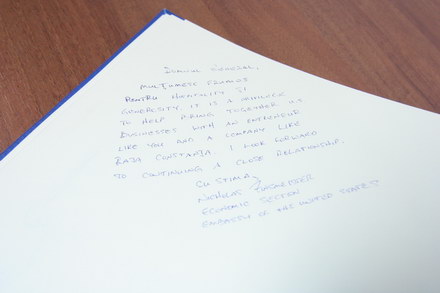 MULTUMESC
PENTRU HOSPITALITY SI
GENEROSITY. IT IS A
TO HELP BRING TOGETHER U.S
BUSINESSES WITH AN
LIKE YOU AND A COMPANY LIKE
RAJA CONSTANTA. I LOOK FORWARD
TO CONTINUING A CLOSE RELATIONSHIP.
CU STIMA,
NICHOLAS
ECONOMIC SECTION
EMBASSY OF THE UNITED STATES